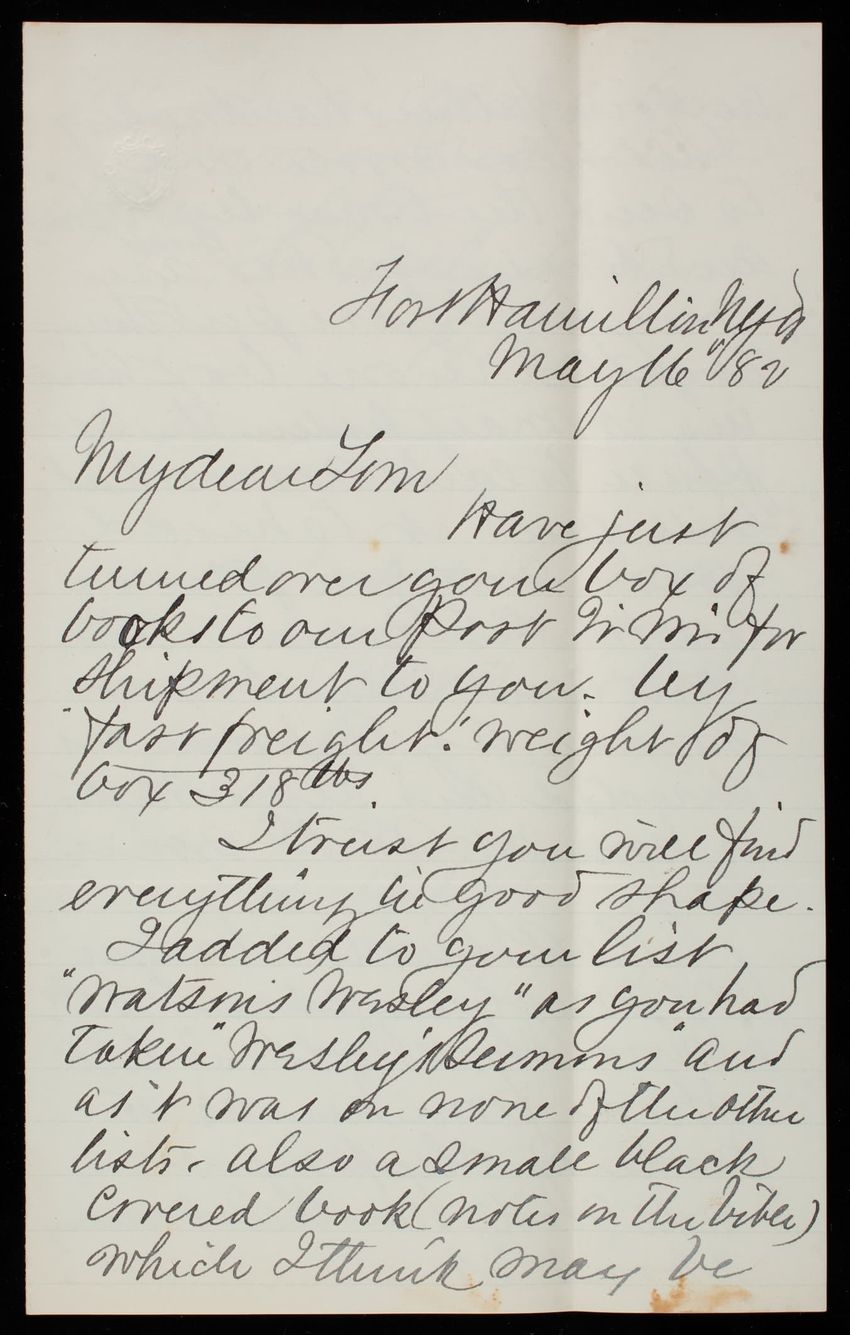 Fort Hamilton N.Y.
May 16" 82
My dear Tom
Have just
turned over your box of
books to our Post Qr Mr for
shipment to you - by
"fast freight". weight of
box 318 lbs
I trust you will find
everything in good shape.
I added to your list
"Watson's Wesley" as you had
taken "Wesley's Sermons" and
as it was on none of the other
lists - also a small black
covered book (notes on the bible)
which I think may be